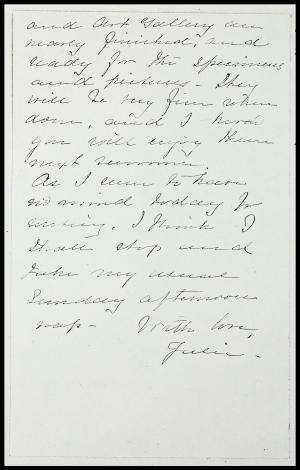 and Art Gallery are
nearly finished, and
ready for the specimens
and pictures - They
will be very fine when
done, and I know
you will enjoy them
next summer.
As I seem to have
no mind today for
writing, I think I
shall stop and
take my usual
Sunday afternoon
nap - With love,
Julie -